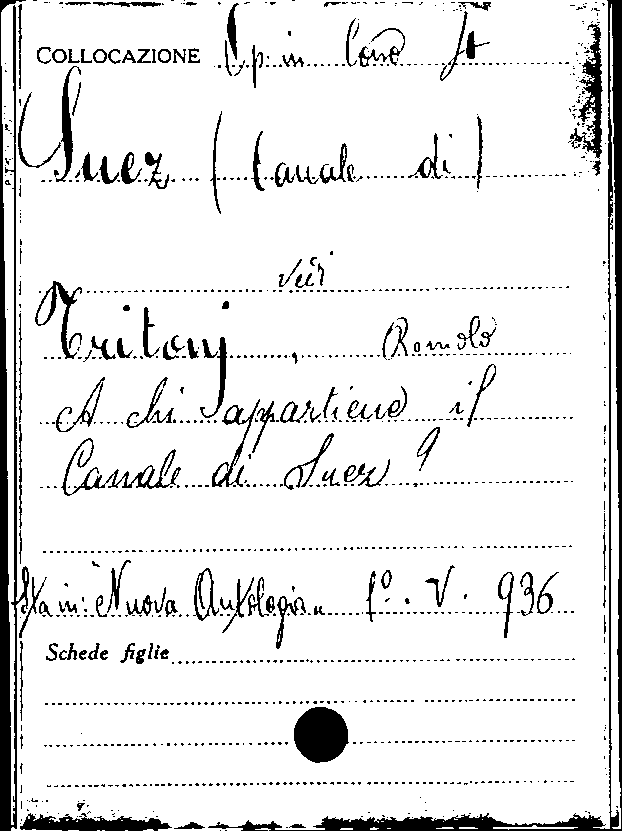 COLLOCAZIONE Op. in Cons
Suez (Canale di)
vedi
Tritonj, Romolo
A chi appartiene il
Canale di Suez?
Sta in: "Nuova Antologia" 1º. V. 936
Schede figlie